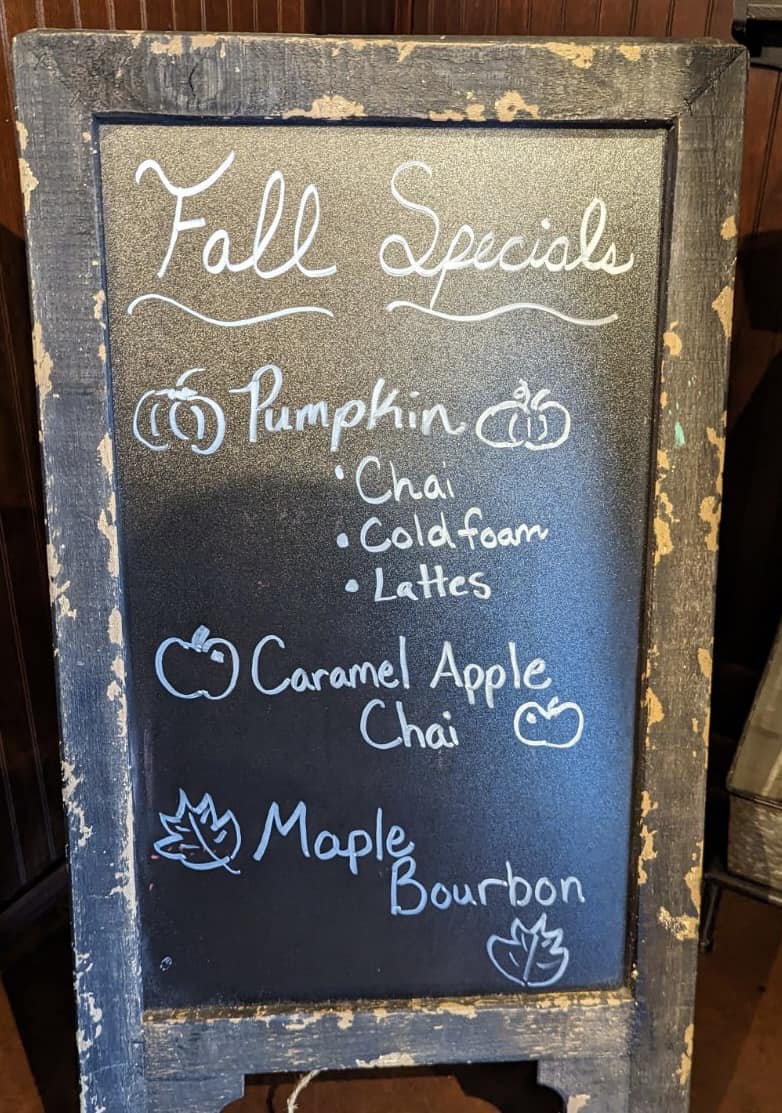 Fall Specials
Pumpkin
• Chai
• Cold foam
• Lattes
Caramel Apple
Chai
Maple
Bourbon